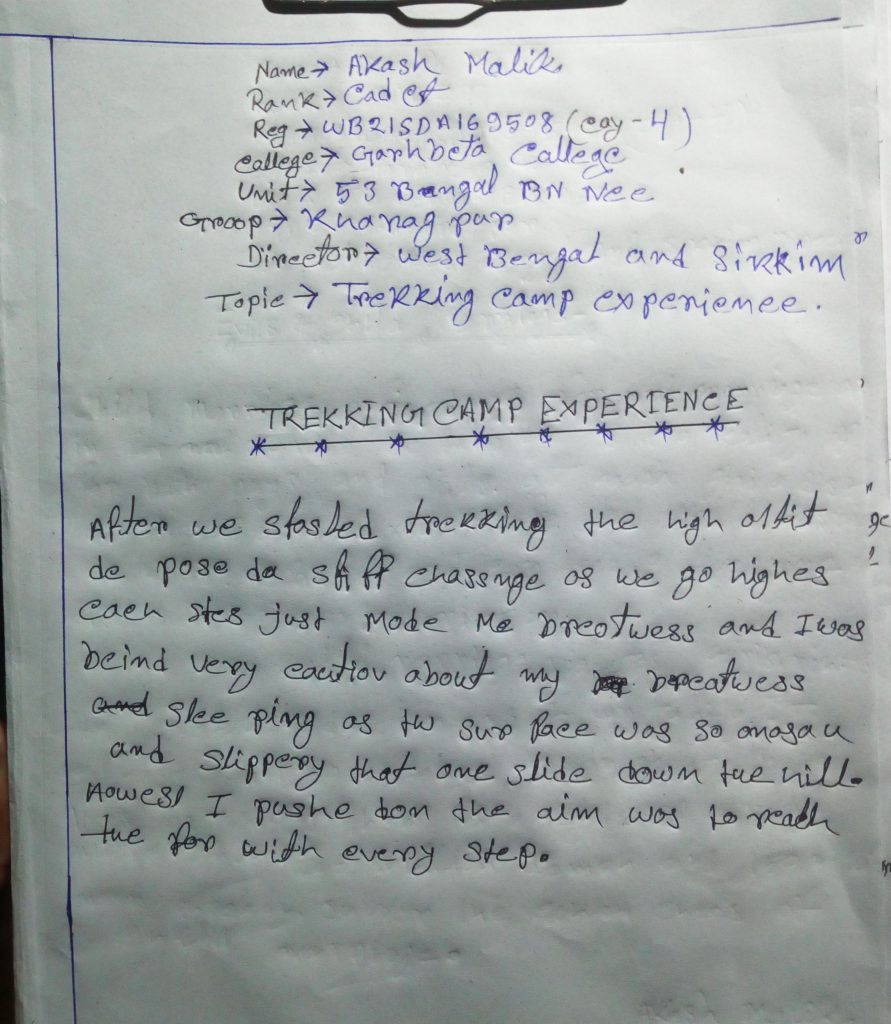 Name→ Akash Malik
Rank→ Cadet
Reg→ WB21SDA169508 (coy-4)
College→ Garhbeta College
Unit→ 53 Bengal BN Ncc
Group→ Kharagpur
Director→ West Bengal and Sikkim"
Topic→ Trekking camp experience.
TREKKING CAMP EXPERIENCE
After we stasled trekking the high altit
de pose da stiff chassnge as we go highes
each step just mode me breotwess and I was
beind very cautiov about my breatwess
and slee ping as tw sur face was so
and slippery that one slide down the hill.
Howesl I pushe don the aim was to reach
the for with every step.